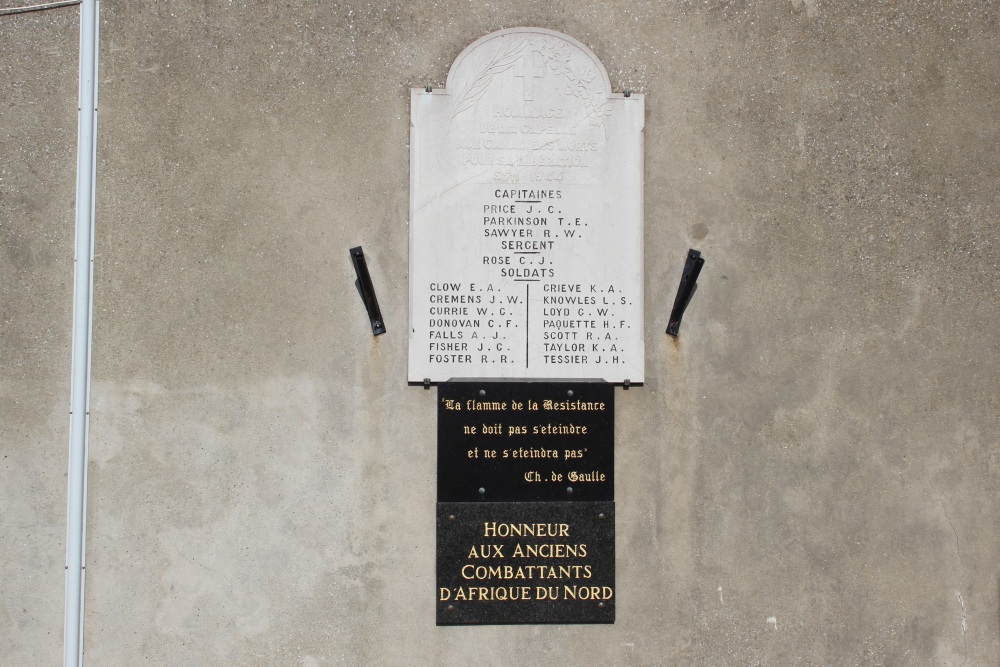 HOMMAGE
DE LA CAPELLE
AUX CANADIENS MORTS
POUR SA LIBERATION
SEPT 1944
CAPITAINES
PRICE J. C.
PARKINSON T. E.
SAWYER R. W.
SERGENT
ROSE C. J.
SOLDATS
CLOW E. A.
CREMENS J. W.
CURRIE W. G.
DONOVAN C. F.
FALLS A. J.
FISHER J. C.
FOSTER R. R.
GRIEVE K. A.
KNOWLES L. S.
LOYD G. W.
PAQUETTE H. F.
SCOTT R. A.
TAYLOR K. A.
TESSIER J. H.
"La flamme de la Resistance
ne doit pas s'eteindre
et ne s'eteindra pas"
Ch. de Gaulle
HONNEUR
AUX ANCIENS
COMBATTANTS
D'AFRIQUE DU NORD